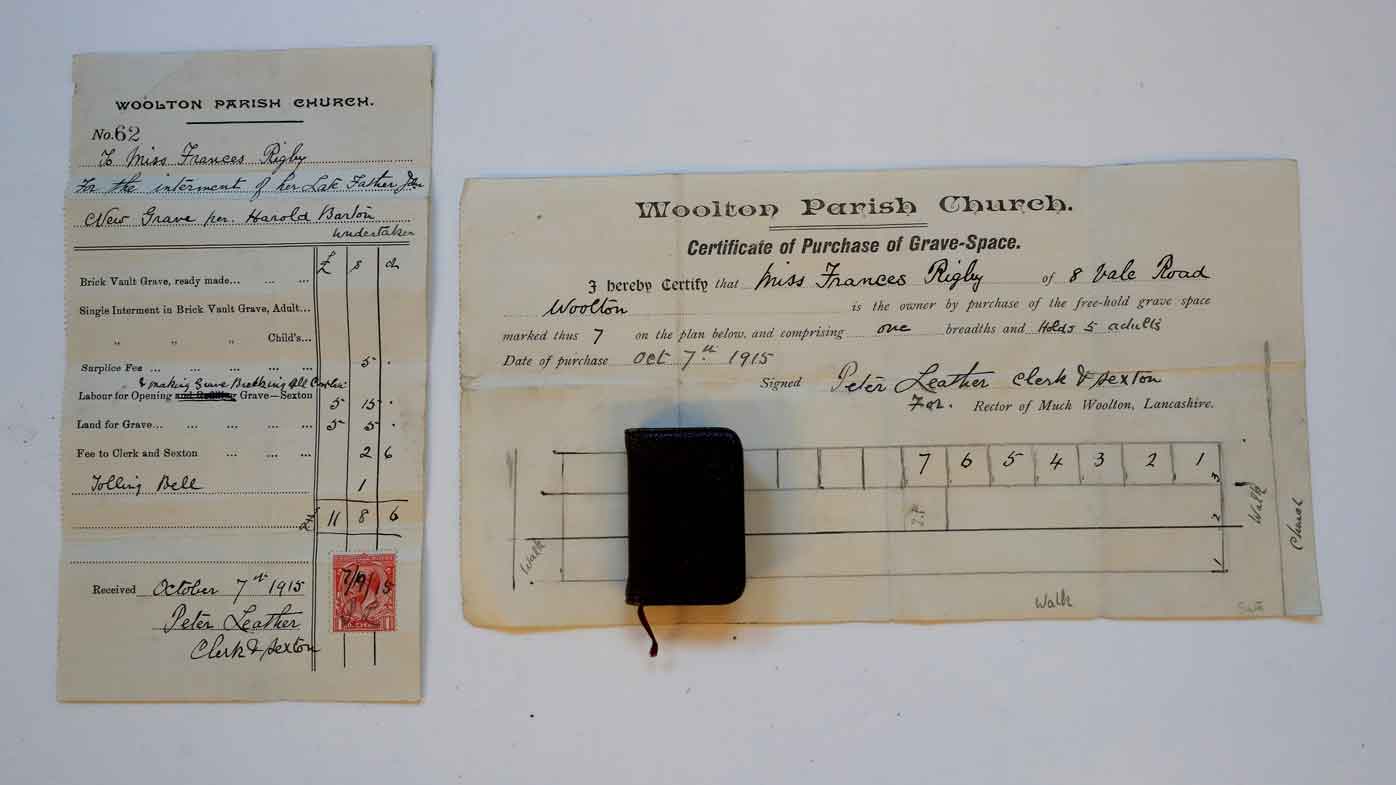 WOOLTON PARISH CHURCH.
No. 62
To Miss Frances Rigby
For the interment of her Late Father John
New Grave per. Harold Barton
undertaker
£ s d
Brick Vault Grave, ready made... ... ...
Single Interment in Brick Vault Grave, Adult...
„ „ „ Child's...
Surplice Fee ... ... ... ... ... 5 .
& making Grave Bricking
Labour for Opening Grave—Sexton 5 15 .
Land for Grave... ... ... ... ... 5 5 .
Fee to Clerk and Sexton ... ... ... 2 6
Tolling Bell 1
11 8 6
Received October 7th 1915
Peter Leather
Clerk & Sexton
7/10/15
Woolton Parish Church.
Certificate of Purchase of Grave-Space.
I hereby Certify that Miss Frances Rigby of 8 Vale Road
Woolton is the owner by purchase of the free-hold grave space
marked thus 7 on the plan below, and comprising one breadths and Holds 5 adults
Date of purchase Oct 7th 1915
Signed Peter Leather Clerk & Sexton
For. Rector of Much Woolton, Lancashire.
7 6 5 4 3 2 1
3
2
1
Walk
Walk
Church
Walk